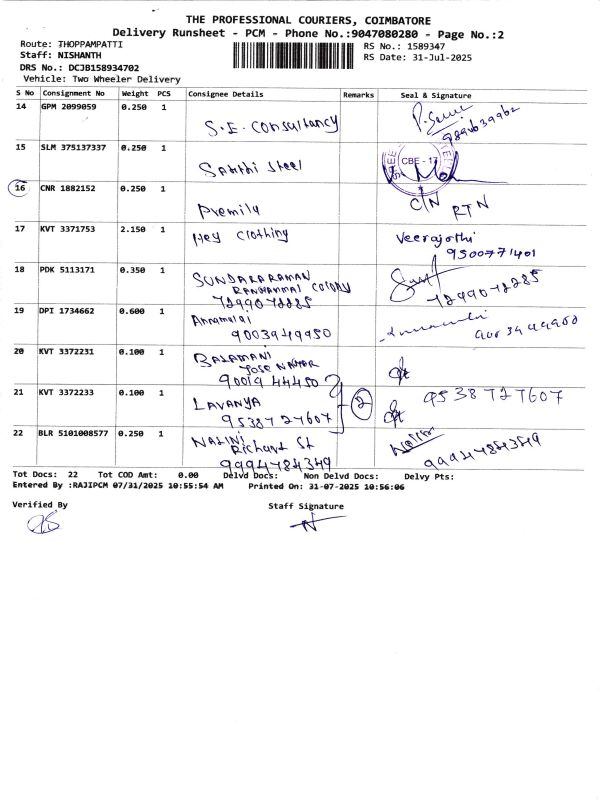 THE PROFESSIONAL COURIERS, COIMBATORE
Delivery Runsheet - PCM - Phone No.:9047080280 - Page No.:2
Route: THOPPAMPATTI
RS No.: 1589347
Staff: NISHANTH
RS Date: 31-Jul-2025
DRS No.: DCJB158934702
Vehicle: Two Wheeler Delivery
S No Consignment No Weight PCS Consignee Details Remarks Seal & Signature
14 GPM 2099059 0.250 1
S.E. Consultancy
9894639962
15 SLM 375137337 0.250 1
CBE - 17
Santhi Steel
16 CNR 1882152 0.250 1
C/N RTN
Premila
17 KVT 3371753 2.150 1
Hey Clothing
Veerajothi
9500771401
18 PDK 5113171 0.350 1
SUNDARARAMAN
COLONY
7299072285
7299072285
19 DPI 1734662 0.600 1
Annamalai
9003949950
20 KVT 3372231 0.100 1
BALAMANI
JOSE NAGAR
9001944450
21 KVT 3372233 0.100 1
2
9538727607
LAVANYA
9538727607
22 BLR 5101008577 0.250 1
NALINI
Richard St
9994784349
9994784349
Tot Docs: 22 Tot COD Amt: 0.00 Delvd Docs: Non Delvd Docs: Delvy Pts:
Entered By :RAJIPCM 07/31/2025 10:55:54 AM Printed On: 31-07-2025 10:56:06
Verified By Staff Signature